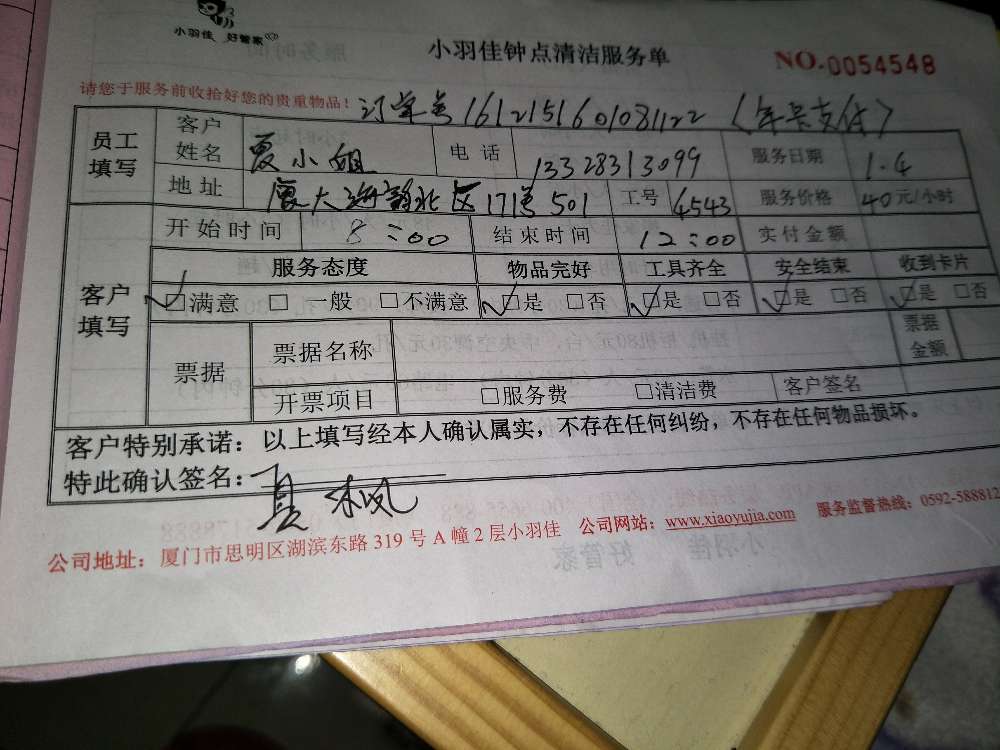 小羽佳 好管家
小羽佳钟点清洁服务单
NO.0054548
请您于服务前收拾好您的贵重物品！
订单号1612151601081122（年卡支付）
员工填写 客户姓名 夏小姐 电话 13328313099 服务日期 1.4
地址 厦大海韵北区17号501 工号 4543 服务价格 40元/小时
客户填写 开始时间 8:00 结束时间 12:00 实付金额
服务态度 物品完好 工具齐全 安全结束 收到卡片
☑满意 □一般 □不满意 ☑是 □否 ☑是 □否 ☑是 □否 ☑是 □否
票据 票据名称 票据金额
开票项目 □服务费 □清洁费 客户签名
客户特别承诺：以上填写经本人确认属实，不存在任何纠纷，不存在任何物品损坏。
特此确认签名：夏
公司地址：厦门市思明区湖滨东路319号A幢2层小羽佳 公司网站：www.xiaoyujia.com 服务监督热线：0592-588812